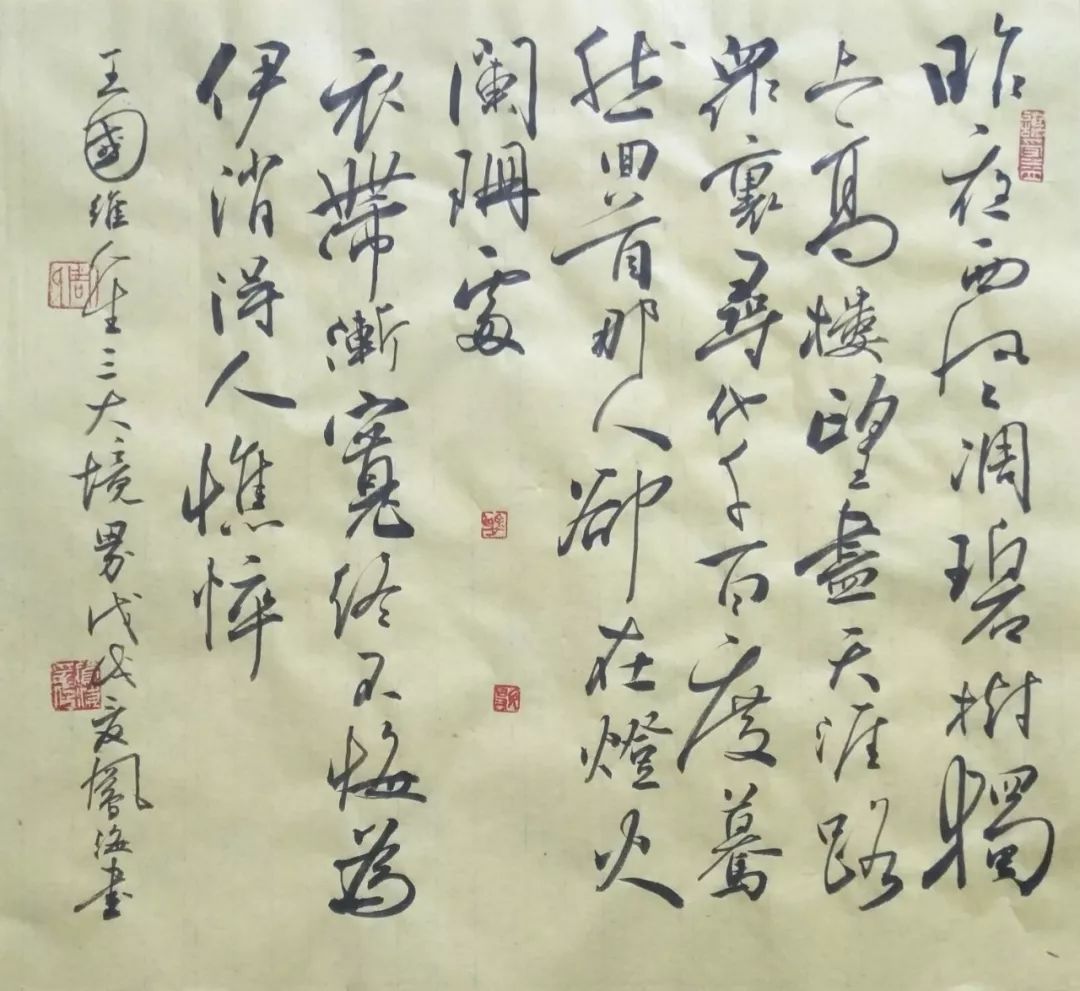 昨夜西风凋碧樹獨
上高樓望盡天涯路
衆裏尋他千百度驀
然回首那人卻在燈火
闌珊處
衣帶漸寬終不悔為
伊消得人憔悴
王國維人生三大境界戊戌夏鳳海書